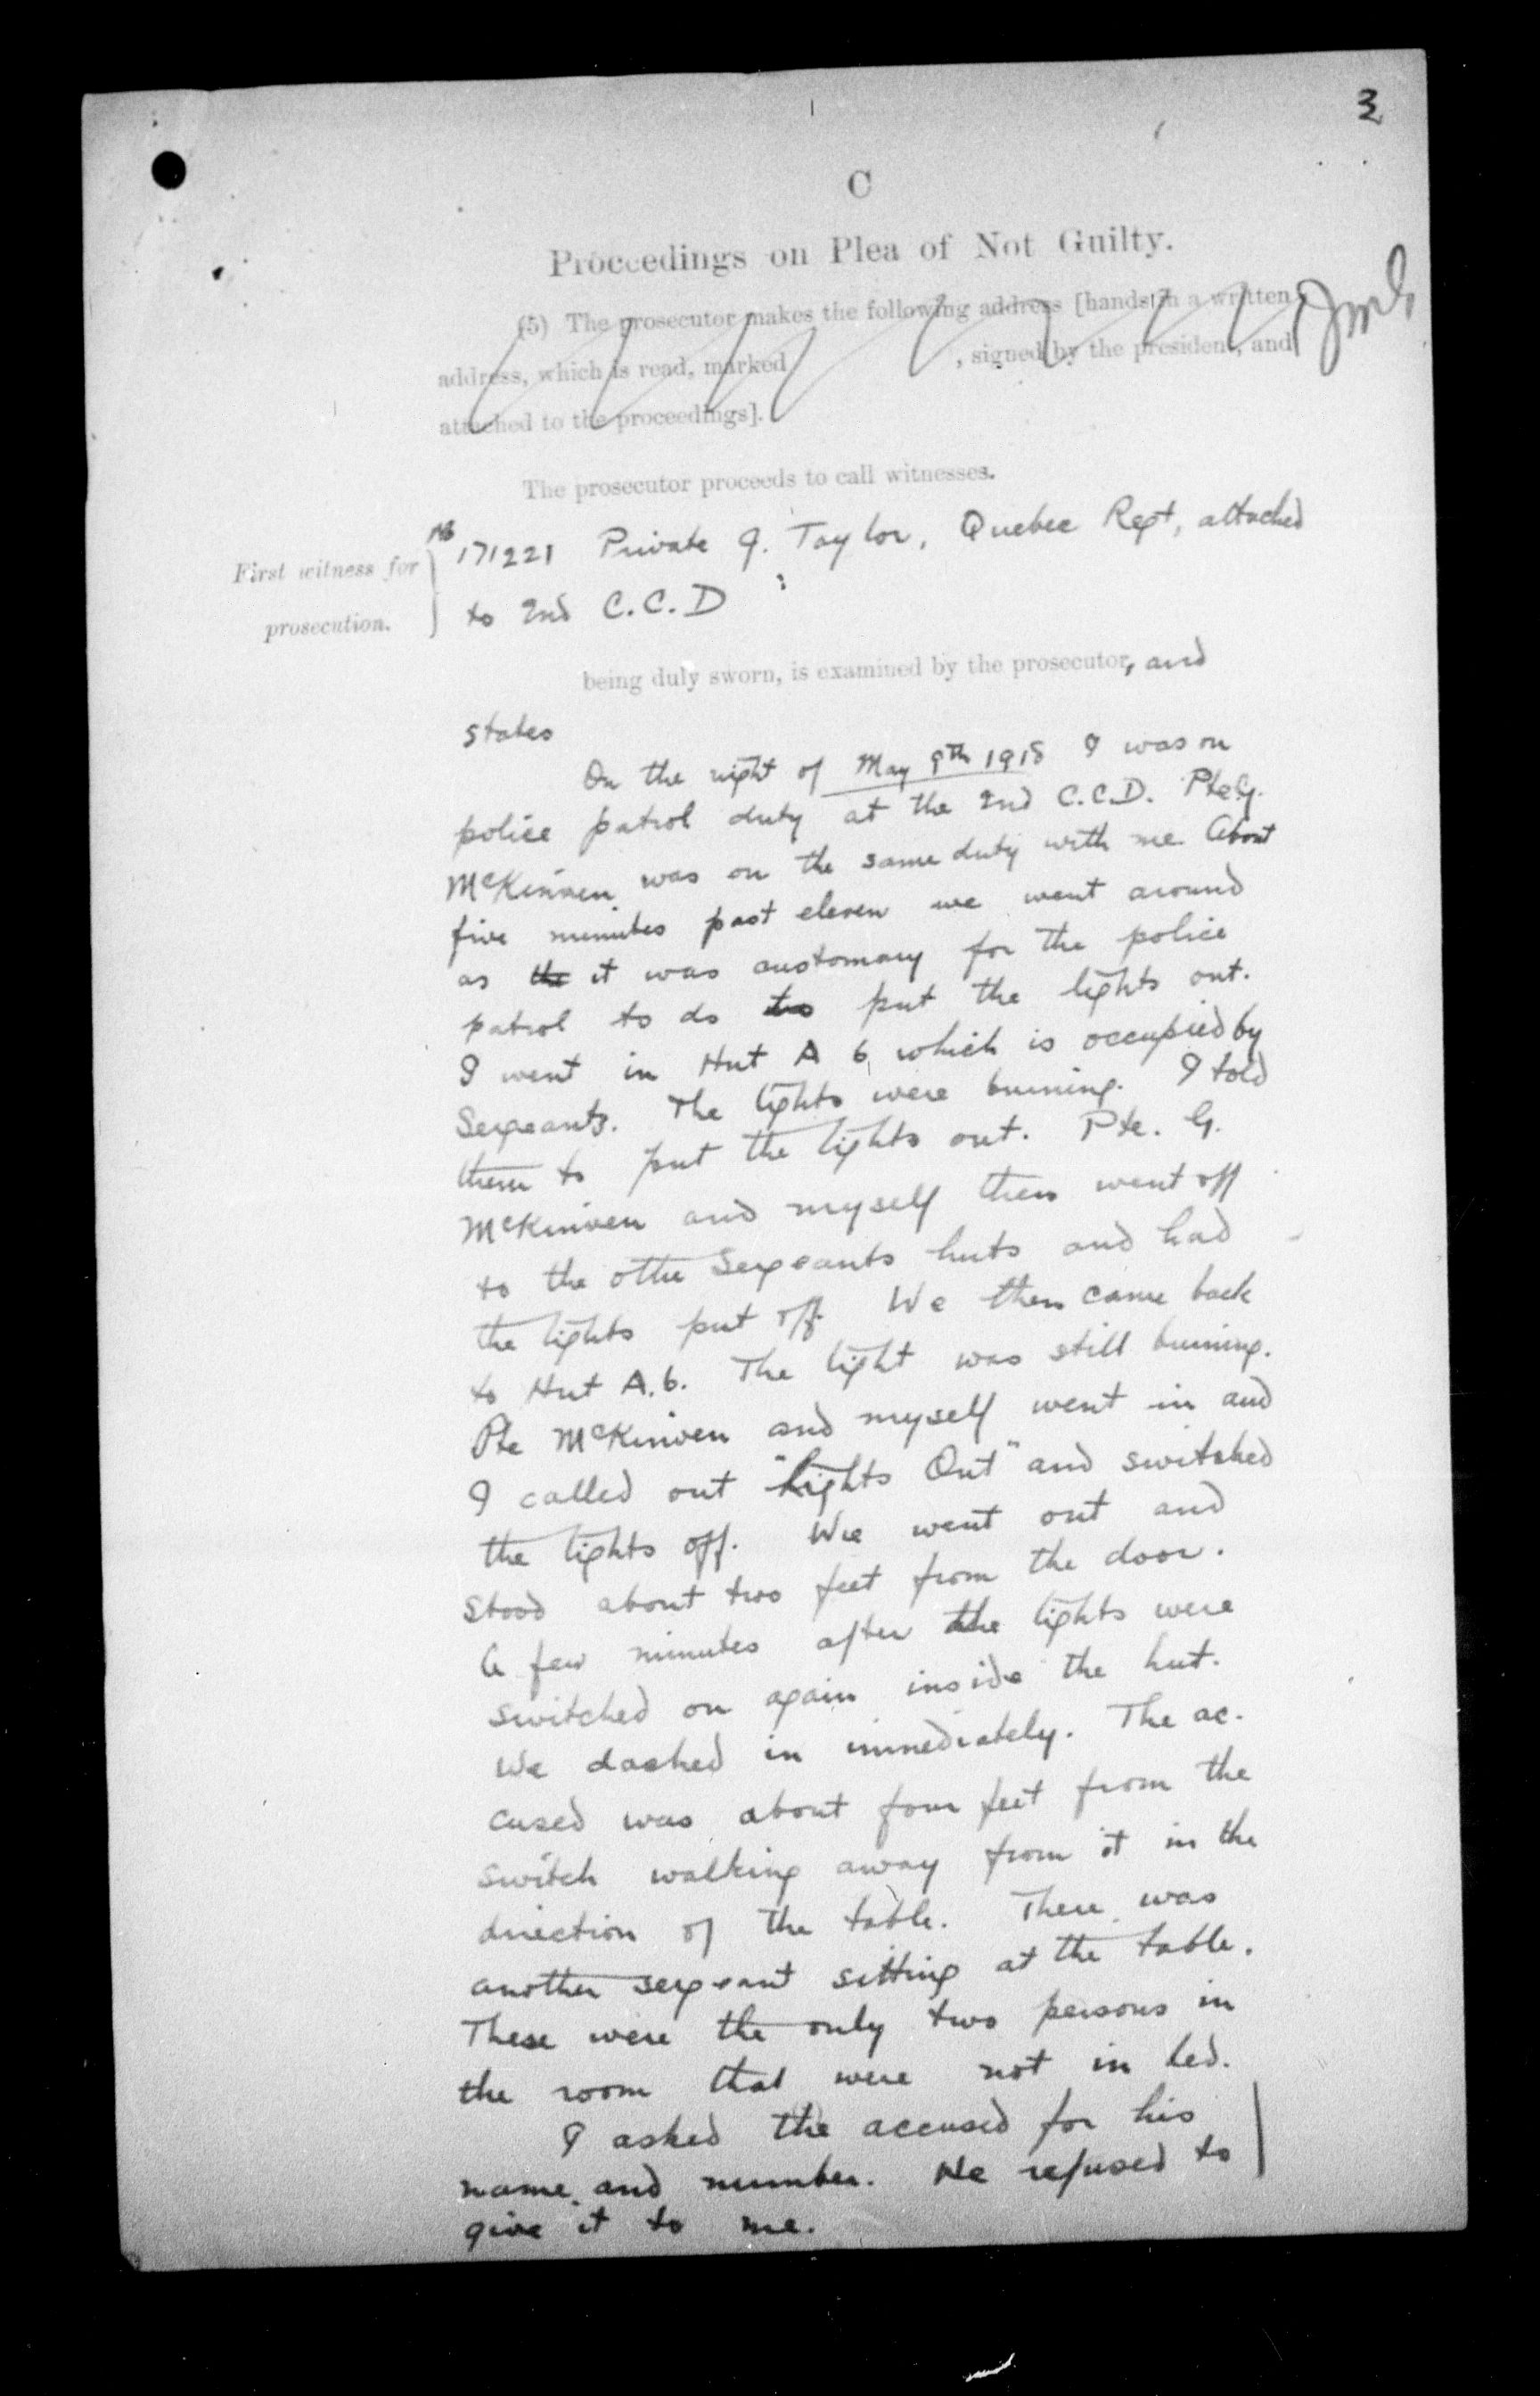 3
C
Proceedings on Plea of Not Guilty.
(5) The prosecutor makes the following address [hands in a written
address, which is read, marked , signed by the president, and
attached to the proceedings].
The prosecutor proceeds to call witnesses.
First witness for
prosecution.
No 171221 Private J. Taylor, Quebec Regt, attached
to 2nd C.C.D :
being duly sworn, is examined by the prosecutor, and
states
On the night of May 9th 1918 I was on
police patrol duty at the 2nd C.C.D. Pte G.
McKinven was on the same duty with me. About
five minutes past eleven we went around
as the it was customary for the police
patrol to do to put the lights out.
I went in Hut A 6 which is occupied by
Sergeants. The lights were burning. I told
them to put the lights out. Pte. G.
McKinven and myself then went off
to the other Sergeants huts and had
the lights put off. We then came back
to Hut A.6. The light was still burning.
Pte McKinven and myself went in and
I called out "Lights Out" and switched
the lights off. We went out and
stood about two feet from the door.
A few minutes after the lights were
switched on again inside the hut.
We dashed in immediately. The ac-
cused was about four feet from the
switch walking away from it in the
direction of the table. There was
another sergeant sitting at the table.
These were the only two persons in
the room that were not in bed.
I asked the accused for his
name and number. He refused to
give it to me.